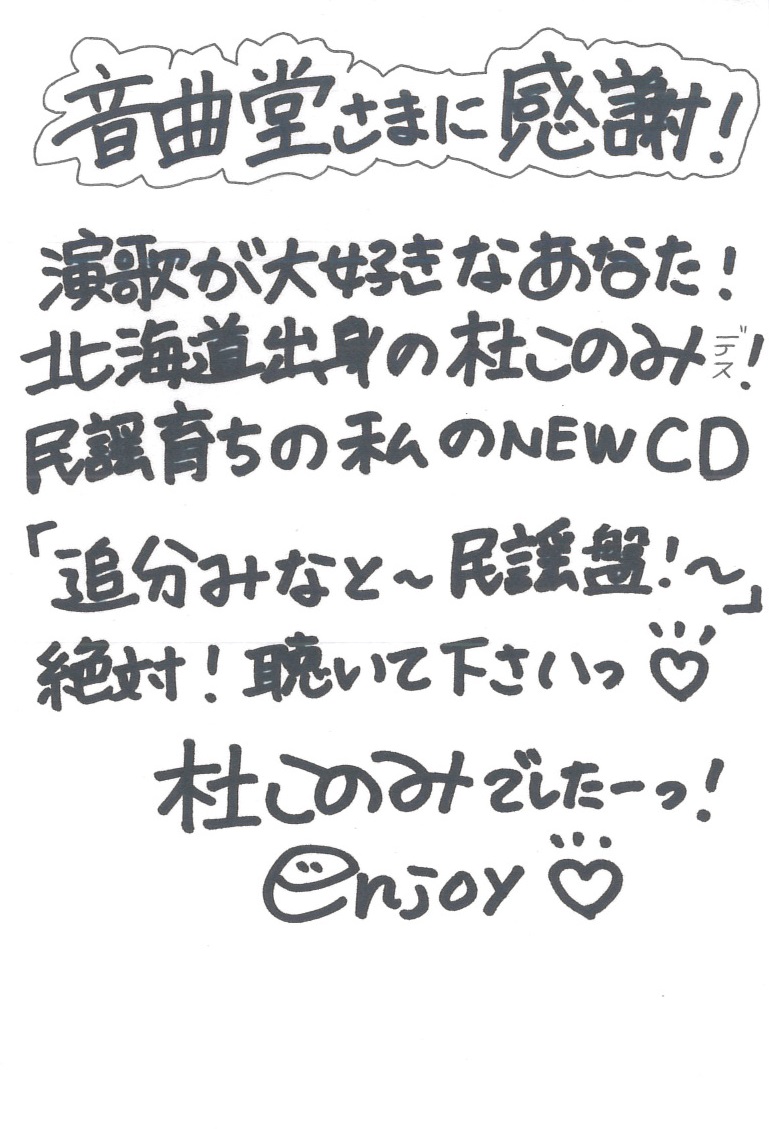 音曲堂さまに感謝!
演歌が大好きなあなた!
北海道出身の杜このみデス!
民謡育ちの私のNEW CD
「追分みなと～民謡盤!～」
絶対!聴いて下さいっ♡
杜このみでしたーっ!
enjoy♡